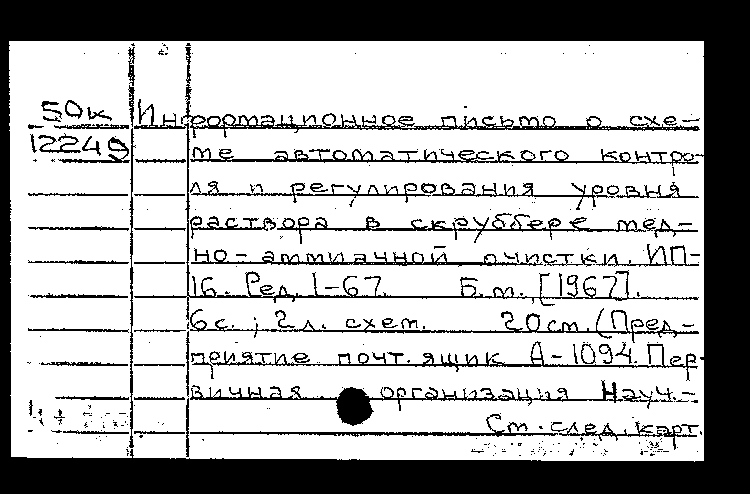 50к Информационное письмо о схе-
12249 ме автоматического контро-
ля и регулирования уровня
раствора в скруббере мед-
но-аммиачной очистки. ИП-
16. Ред. 1-67. Б.м., [1967].
6с.; 2л. схем. 20см. (Пред-
приятие почт. ящик А-1094. Пер-
вичная организация Науч.-
См. след. карт.